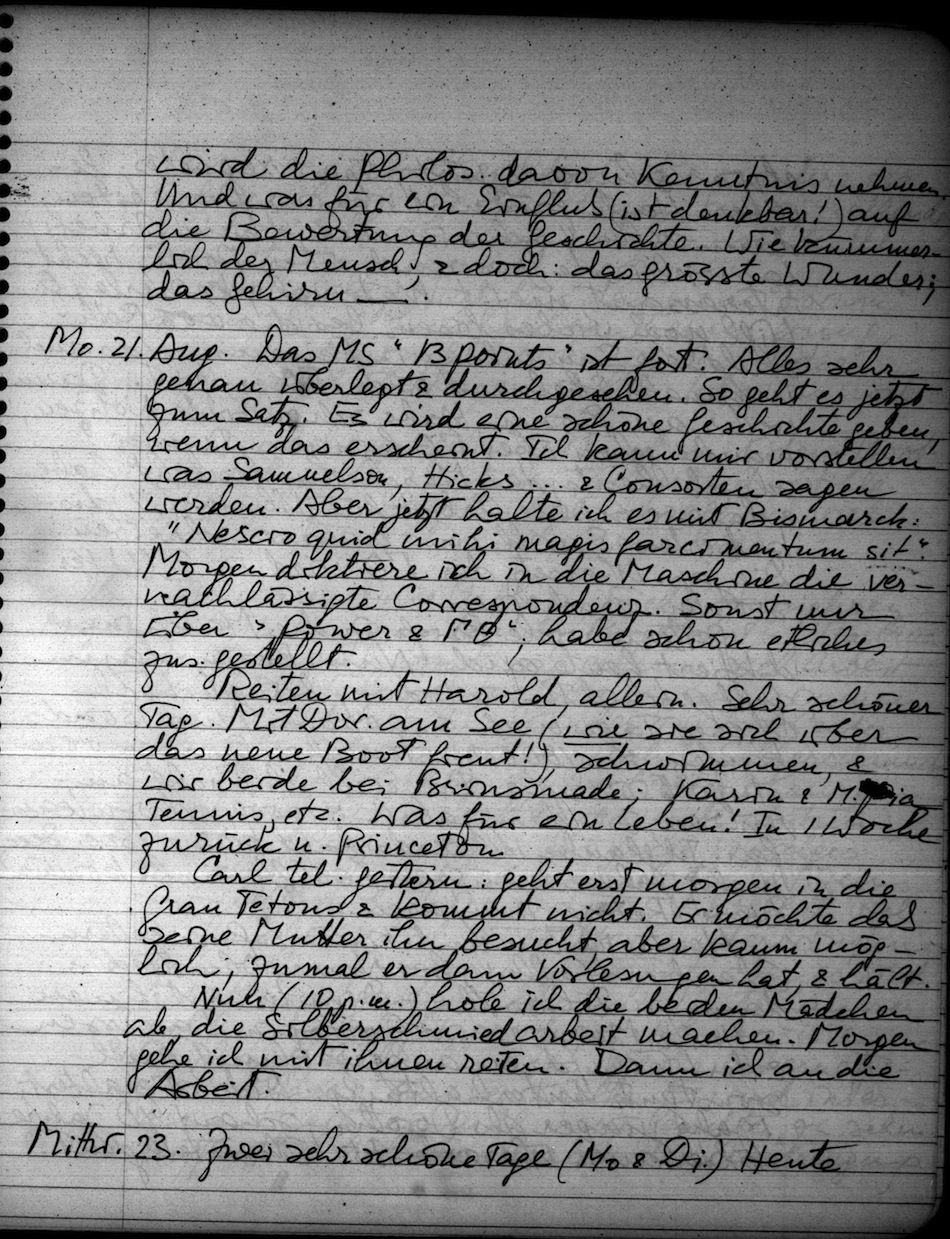 wird die Philos. davon Kenntnis nehmen.
Und was für ein Einfluss (ist denkbar!) auf
die Bewertung der Geschichte. Wie kümmer-
lich der Mensch, & doch: das grösste Wunder;
das Gehirn —.
Mo. 21. Aug. Das MS "13 points" ist fort. Alles sehr
genau überlegt & durchgesehen. So geht es jetzt
zum Satz. Es wird eine schöne Geschichte geben,
wenn das erscheint. Ich kann mir vorstellen
was Samuelson, Hicks ... & Consorten sagen
werden. Aber jetzt halte ich es mit Bismarck:
"Nescio quid mihi magis farcimentum sit".
Morgen diktiere ich in die Maschine die ver-
nachlässigte Correspondenz. Sonst nur
über "Power & ", habe schon etliches
zus. gestellt.
Reiten mit Harold, allein. Sehr schöner
Tag. Mit Dor. am See (wie sie sich über
das neue Boot freut!), schwimmen, &
wir beide bei Brinsmade; Karin & M. Pia
Tennis, etc. Was für ein Leben! In 1 Woche
zurück n. Princeton
Carl tel. gestern: geht erst morgen in die
Gran Tetons & kommt nicht. Er möchte dass
seine Mutter ihn besucht aber kaum mög-
lich, zumal er dann Vorlesungen hat, & hält.
Nun (10 p.m.) hole ich die beiden Mädchen
ab, die Silberschmiedarbeit machen. Morgen
gehe ich mit ihnen reiten. Dann ich an die
Arbeit.
Mittw. 23. Zwei sehr schöne Tage (Mo & Di.) Heute